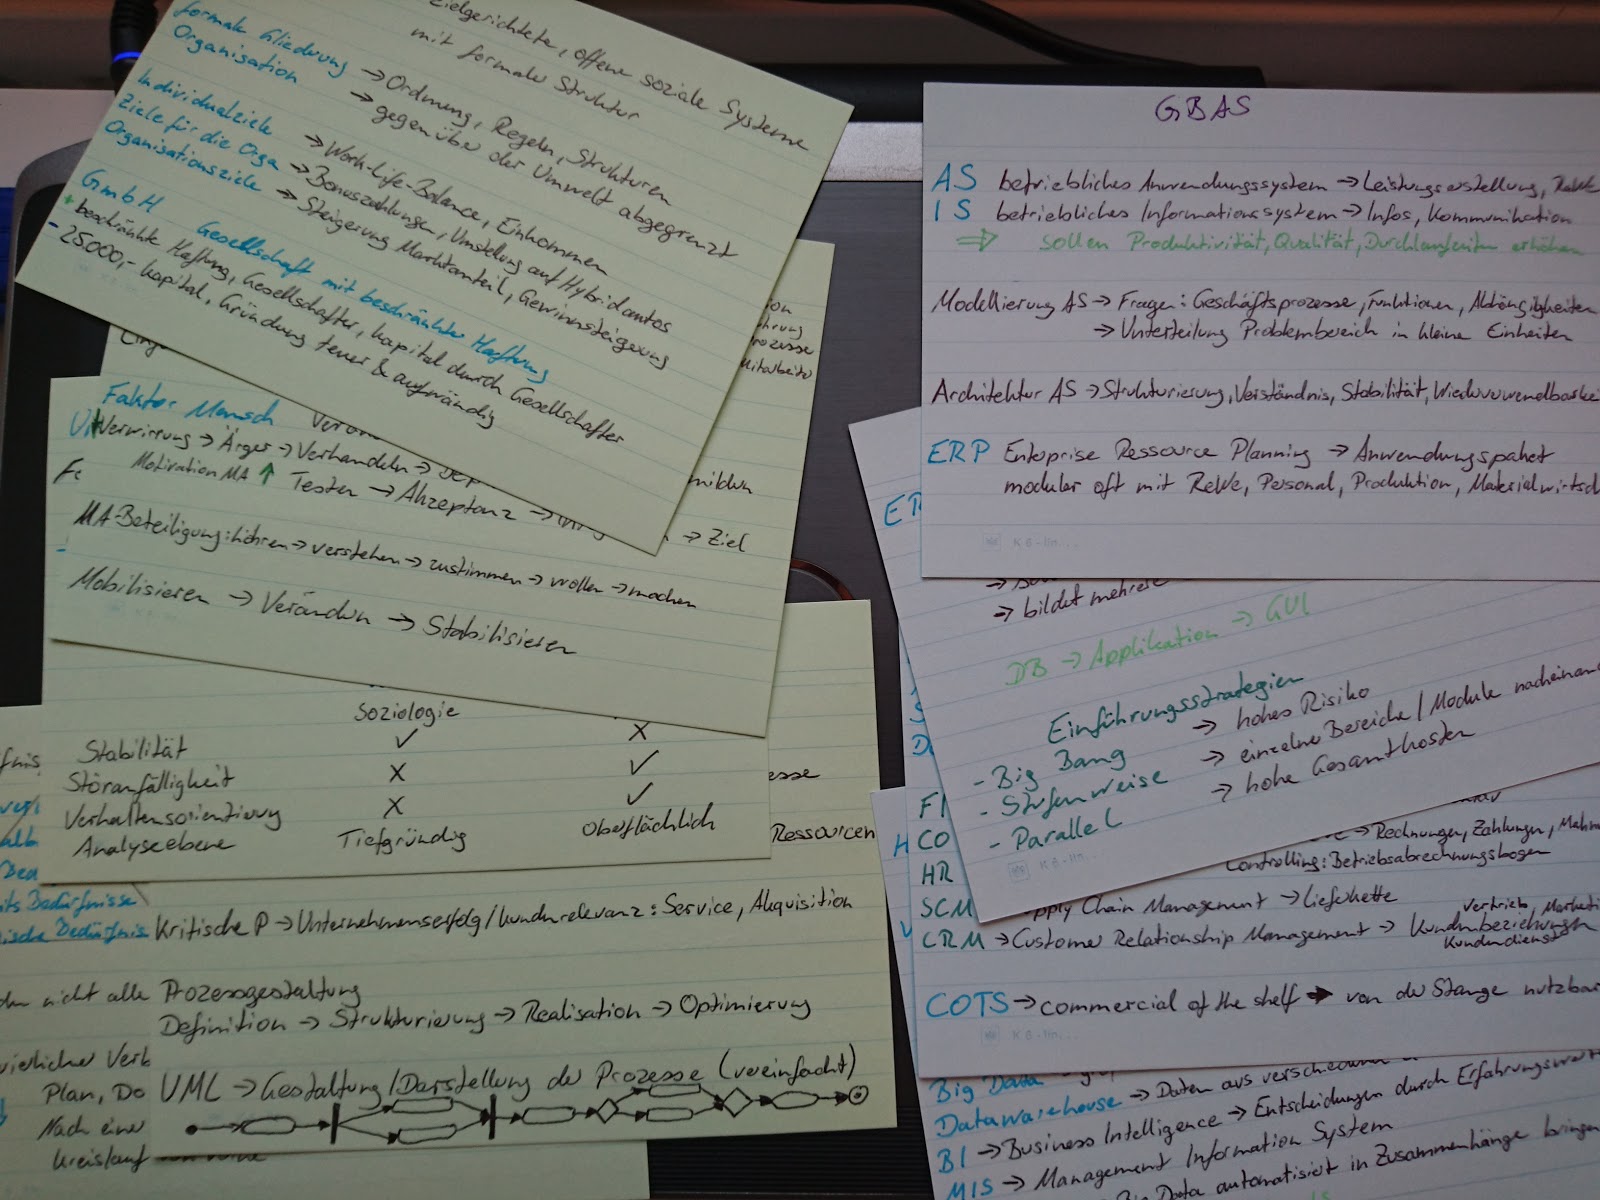 Zielgerichtete, offene soziale Systeme
mit formaler Struktur
formale Gliederung → Ordnung, Regeln, Strukturen
Organisation → gegenüber der Umwelt abgegrenzt
Individualziele → Work-Life-Balance, Einkommen
Ziele für die Orga → Bonuszahlungen, Umstellung auf Hybridautos
Organisationsziele → Steigerung Marktanteil, Gewinnsteigerung
GmbH Gesellschaft mit beschränkter Haftung
+ beschränkte Haftung, Gesellschafter, Kapital durch Gesellschafter
- 25000,- Kapital, Gründung teuer & aufwändig
Faktor Mensch
Verwirrung → Ärger → Verhandeln →
Motivation MA ↑ Testen → Akzeptanz →
→ Ziel
MA-Beteiligung: hören → verstehen → zustimmen → wollen → machen
Mobilisieren → Verändern → Stabilisieren
Soziologie
Stabilität ✓ X
Störanfälligkeit X ✓
Verhaltensorientierung X ✓
Analyseebene Tiefgründig Oberflächlich
Ressourcen
Kritische P → Unternehmenserfolg/Kundenrelevanz: Service, Akquisition
nicht alle
Prozessgestaltung
Definition → Strukturierung → Realisation → Optimierung
Plan, Do
UML → Gestaltung/Darstellung der Prozesse (vereinfacht)
Nach einer
Kreislauf
GBAS
AS betriebliches Anwendungssystem → Leistungserstellung, ReWe
IS betriebliches Informationssystem → Infos, Kommunikation
⇒ sollen Produktivität, Qualität, Durchlaufzeiten erhöhen
Modellierung AS → Fragen: Geschäftsprozesse, Funktionen, Abhängigkeiten
→ Unterteilung Problembereich in kleine Einheiten
Architektur AS → Strukturierung, Verständnis, Stabilität, Wiederverwendbarkei
ERP Enterprise Ressource Planning → Anwendungspaket
modular oft mit ReWe, Personal, Produktion, Materialwirtsch
K6-lin...
→ bildet mehrere
DB → Applikation → GUI
Einführungsstrategien
- Big Bang → hohes Risiko
- Stufenweise → einzelne Bereiche/Module nacheinan
- Parallel → hohe Gesamtkosten
K6-lin...
FI
→ Rechnungen, Zahlungen, Mahn
CO
Controlling: Betriebsabrechnungsbogen
HR
SCM Supply Chain Management → Lieferkette
CRM → Customer Relationship Management → Kundenbeziehungen
Vertrieb, Marketi
Kundendienst
COTS → commercial of the shelf → von der Stange nutzbar
K6-lin...
Big Data
Datawarehouse → Daten aus verschiedenen
BI → Business Intelligence → Entscheidungen durch Erfahrungswerte
MIS → Management Information System
Big Data automatisiert in Zusammenhänge bringen